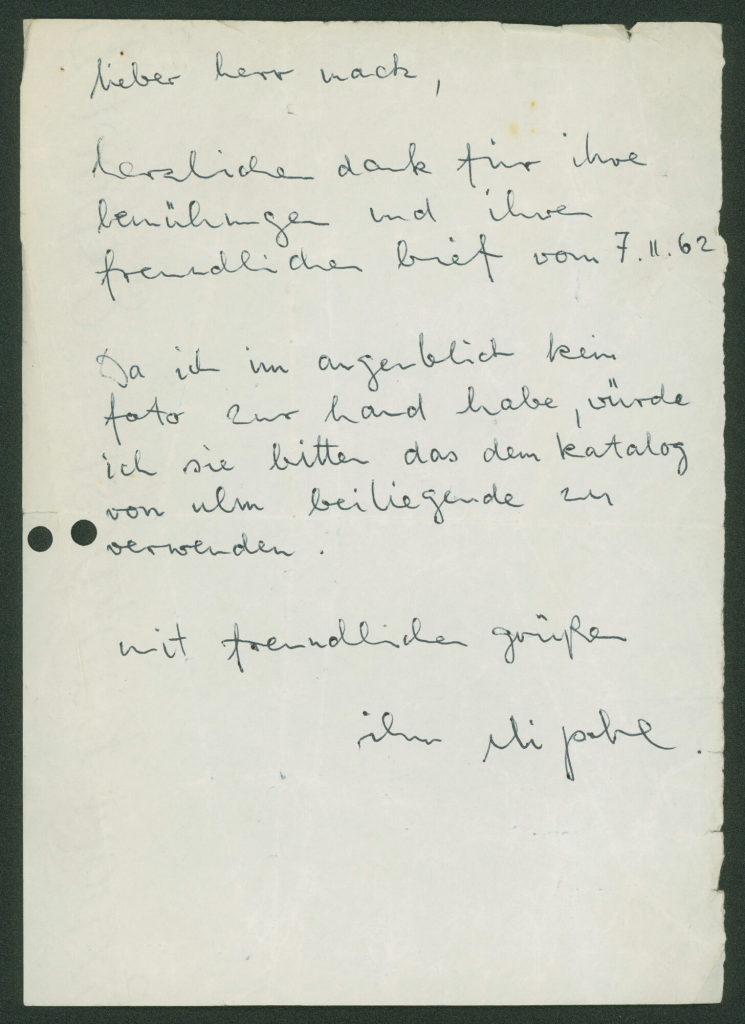 lieber herr mack,
herzlichen dank für ihre
bemühungen und ihren
freundlichen brief vom 7.11.62
Da ich im augenblick kein
foto zur hand habe, würde
ich sie bitten das dem katalog
von ulm beiliegende zu
verwenden.
mit freundlichen grüßen
ihr uli pohl.